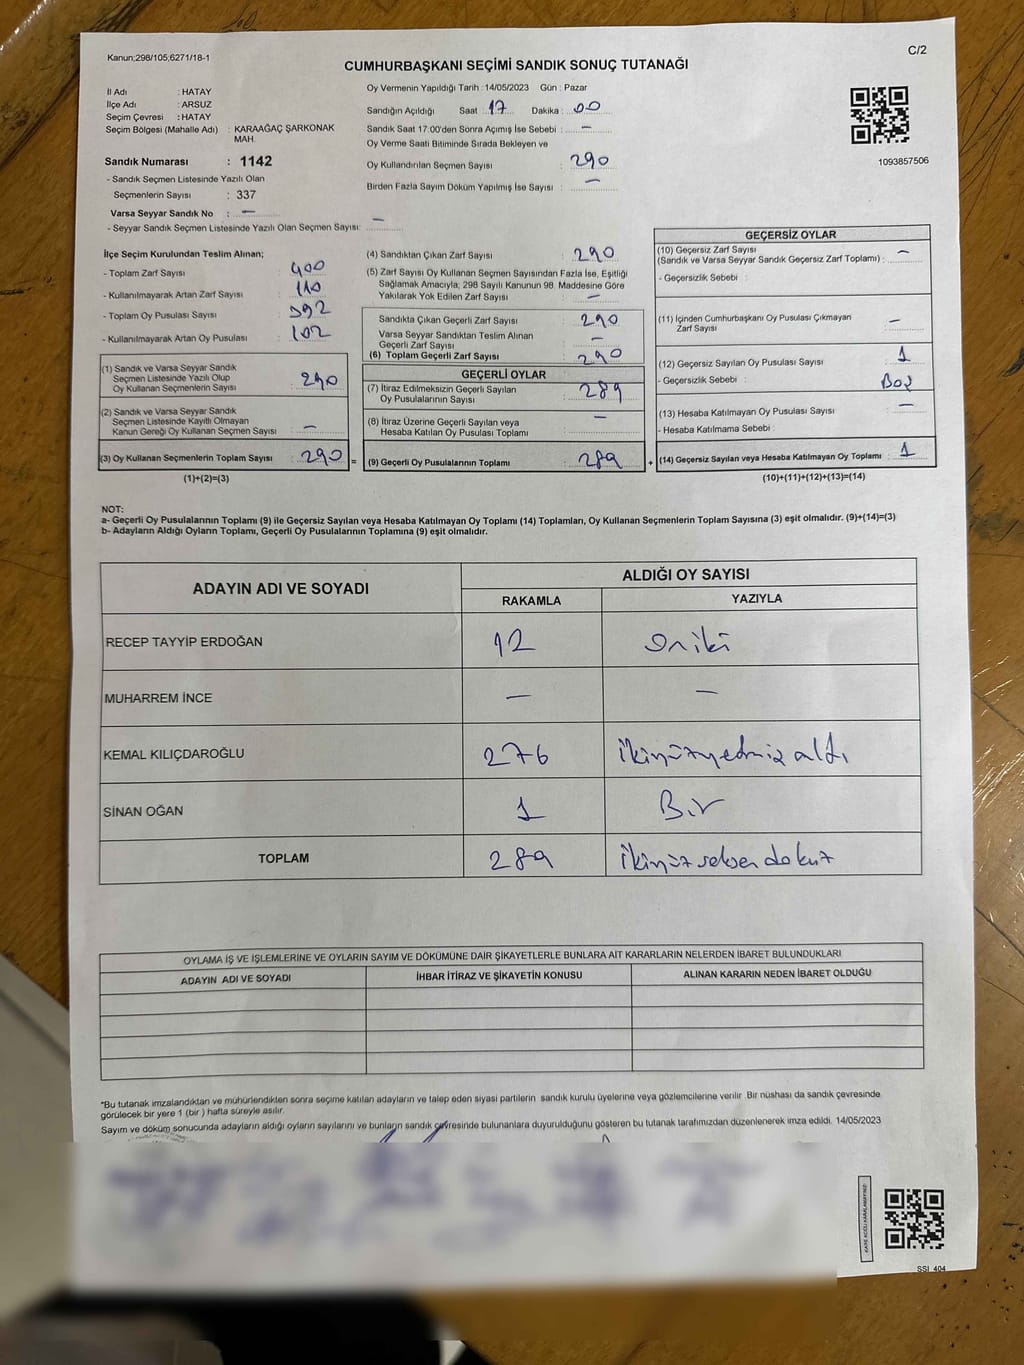 Kanun;298/105;6271/18-1
C/2
CUMHURBAŞKANI SEÇİMİ SANDIK SONUÇ TUTANAĞI
İl Adı : HATAY
İlçe Adı : ARSUZ
Seçim Çevresi : HATAY
Seçim Bölgesi (Mahalle Adı) : KARAAĞAÇ ŞARKONAK
MAH.
Sandık Numarası : 1142
- Sandık Seçmen Listesinde Yazılı Olan
Seçmenlerin Sayısı : 337
Varsa Seyyar Sandık No : —
- Seyyar Sandık Seçmen Listesinde Yazılı Olan Seçmen Sayısı: —
Oy Vermenin Yapıldığı Tarih : 14/05/2023 Gün : Pazar
Sandığın Açıldığı Saat : 17 Dakika : 00
Sandık Saat 17:00'den Sonra Açımış İse Sebebi : —
Oy Verme Saati Bitiminde Sırada Bekleyen ve
Oy Kullandırılan Seçmen Sayısı : 290
Birden Fazla Sayım Döküm Yapılmış İse Sayısı : —
1093857506
İlçe Seçim Kurulundan Teslim Alınan;
- Toplam Zarf Sayısı : 400
- Kullanılmayarak Artan Zarf Sayısı : 110
- Toplam Oy Pusulası Sayısı : 392
- Kullanılmayarak Artan Oy Pusulası : 102
(1) Sandık ve Varsa Seyyar Sandık
Seçmen Listesinde Yazılı Olup
Oy Kullanan Seçmenlerin Sayısı : 290
(2) Sandık ve Varsa Seyyar Sandık
Seçmen Listesinde Kayıtlı Olmayan
Kanun Gereği Oy Kullanan Seçmen Sayısı : —
(3) Oy Kullanan Seçmenlerin Toplam Sayısı : 290 =
(1)+(2)=(3)
(4) Sandıktan Çıkan Zarf Sayısı : 290
(5) Zarf Sayısı Oy Kullanan Seçmen Sayısından Fazla İse, Eşitliği
Sağlamak Amacıyla, 298 Sayılı Kanunun 98. Maddesine Göre
Yakılarak Yok Edilen Zarf Sayısı : —
Sandıkta Çıkan Geçerli Zarf Sayısı : 290
Varsa Seyyar Sandıktan Teslim Alınan
Geçerli Zarf Sayısı : —
(6) Toplam Geçerli Zarf Sayısı : 290
GEÇERLİ OYLAR
(7) İtiraz Edilmeksizin Geçerli Sayılan
Oy Pusulalarının Sayısı : 289
(8) İtiraz Üzerine Geçerli Sayılan veya
Hesaba Katılan Oy Pusulası Toplamı : —
(9) Geçerli Oy Pusulalarının Toplamı : 289 +
GEÇERSİZ OYLAR
(10) Geçersiz Zarf Sayısı
(Sandık ve Varsa Seyyar Sandık Geçersiz Zarf Toplamı) : —
- Geçersizlik Sebebi :
(11) İçinden Cumhurbaşkanı Oy Pusulası Çıkmayan
Zarf Sayısı : —
(12) Geçersiz Sayılan Oy Pusulası Sayısı : 1
- Geçersizlik Sebebi : Boş
(13) Hesaba Katılmayan Oy Pusulası Sayısı : —
- Hesaba Katılmama Sebebi :
(14) Geçersiz Sayılan veya Hesaba Katılmayan Oy Toplamı : 1
(10)+(11)+(12)+(13)=(14)
NOT:
a- Geçerli Oy Pusulalarının Toplamı (9) ile Geçersiz Sayılan veya Hesaba Katılmayan Oy Toplamı (14) Toplamları, Oy Kullanan Seçmenlerin Toplam Sayısına (3) eşit olmalıdır. (9)+(14)=(3)
b- Adayların Aldığı Oyların Toplamı, Geçerli Oy Pusulalarının Toplamına (9) eşit olmalıdır.
ADAYIN ADI VE SOYADI ALDIĞI OY SAYISI
RAKAMLA YAZIYLA
RECEP TAYYİP ERDOĞAN 12 oniki
MUHARREM İNCE — —
KEMAL KILIÇDAROĞLU 276 ikiyüzyetmiş altı
SİNAN OĞAN 1 Bir
TOPLAM 289 ikiyüz seksen dokuz
OYLAMA İŞ VE İŞLEMLERİNE VE OYLARIN SAYIM VE DÖKÜMÜNE DAİR ŞİKAYETLERLE BUNLARA AİT KARARLARIN NELERDEN İBARET BULUNDUKLARI
ADAYIN ADI VE SOYADI İHBAR İTİRAZ VE ŞİKAYETİN KONUSU ALINAN KARARIN NEDEN İBARET OLDUĞU
*Bu tutanak imzalandıktan ve mühürlendikten sonra seçime katılan adayların ve talep eden siyasi partilerin sandık kurulu üyelerine veya gözlemcilerine verilir. Bir nüshası da sandık çevresinde
görülecek bir yere 1 (bir ) hafta süreyle asılır.
Sayım ve döküm sonucunda adayların aldığı oyların sayılarını ve bunların sandık çevresinde bulunanlara duyurulduğunu gösteren bu tutanak tarafımızdan düzenlenerek imza edildi. 14/05/2023
SSİ 404